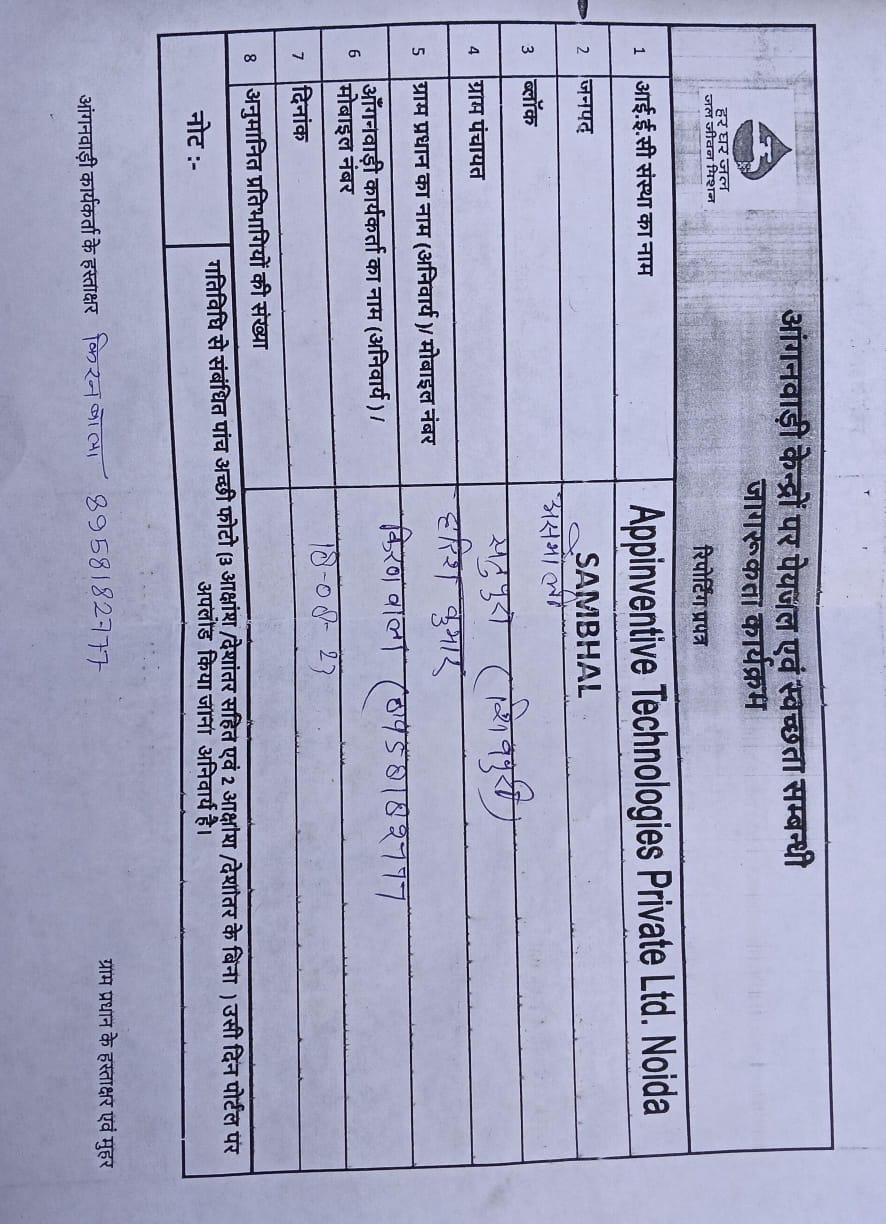 आंगनवाड़ी केन्द्रों पर पेयजल एवं स्वच्छता सम्बन्धी
जागरूकता कार्यक्रम
हर घर जल
जल जीवन मिशन
रिपोर्टिंग प्रपत्र
1 आई.ई.सी संस्था का नाम Appinventive Technologies Private Ltd. Noida
2 जनपद SAMBHAL
3 ब्लॉक असमोली
4 ग्राम पंचायत (शिवपुरी)
5 ग्राम प्रधान का नाम (अनिवार्य )/ मोबाइल नंबर हरिश कुमार
6 आँगनवाड़ी कार्यकर्ता का नाम (अनिवार्य ) / किरन वाला (8958182777
मोबाइल नंबर
7 दिनांक 18-08-23
8 अनुमानित प्रतिभागियों की संख्या
नोट :- गतिविधि से संबंधित पांच अच्छी फोटो (3 आक्षांय /देशांतर सहित एवं 2 आक्षांय /देशांतर के बिना ) उसी दिन पोर्टल पर
अपलोड किया जाना अनिवार्य है।
आंगनवाड़ी कार्यकर्ता के हस्ताक्षर किरन वाला 8958182777
ग्राम प्रधान के हस्ताक्षर एवं मुहर